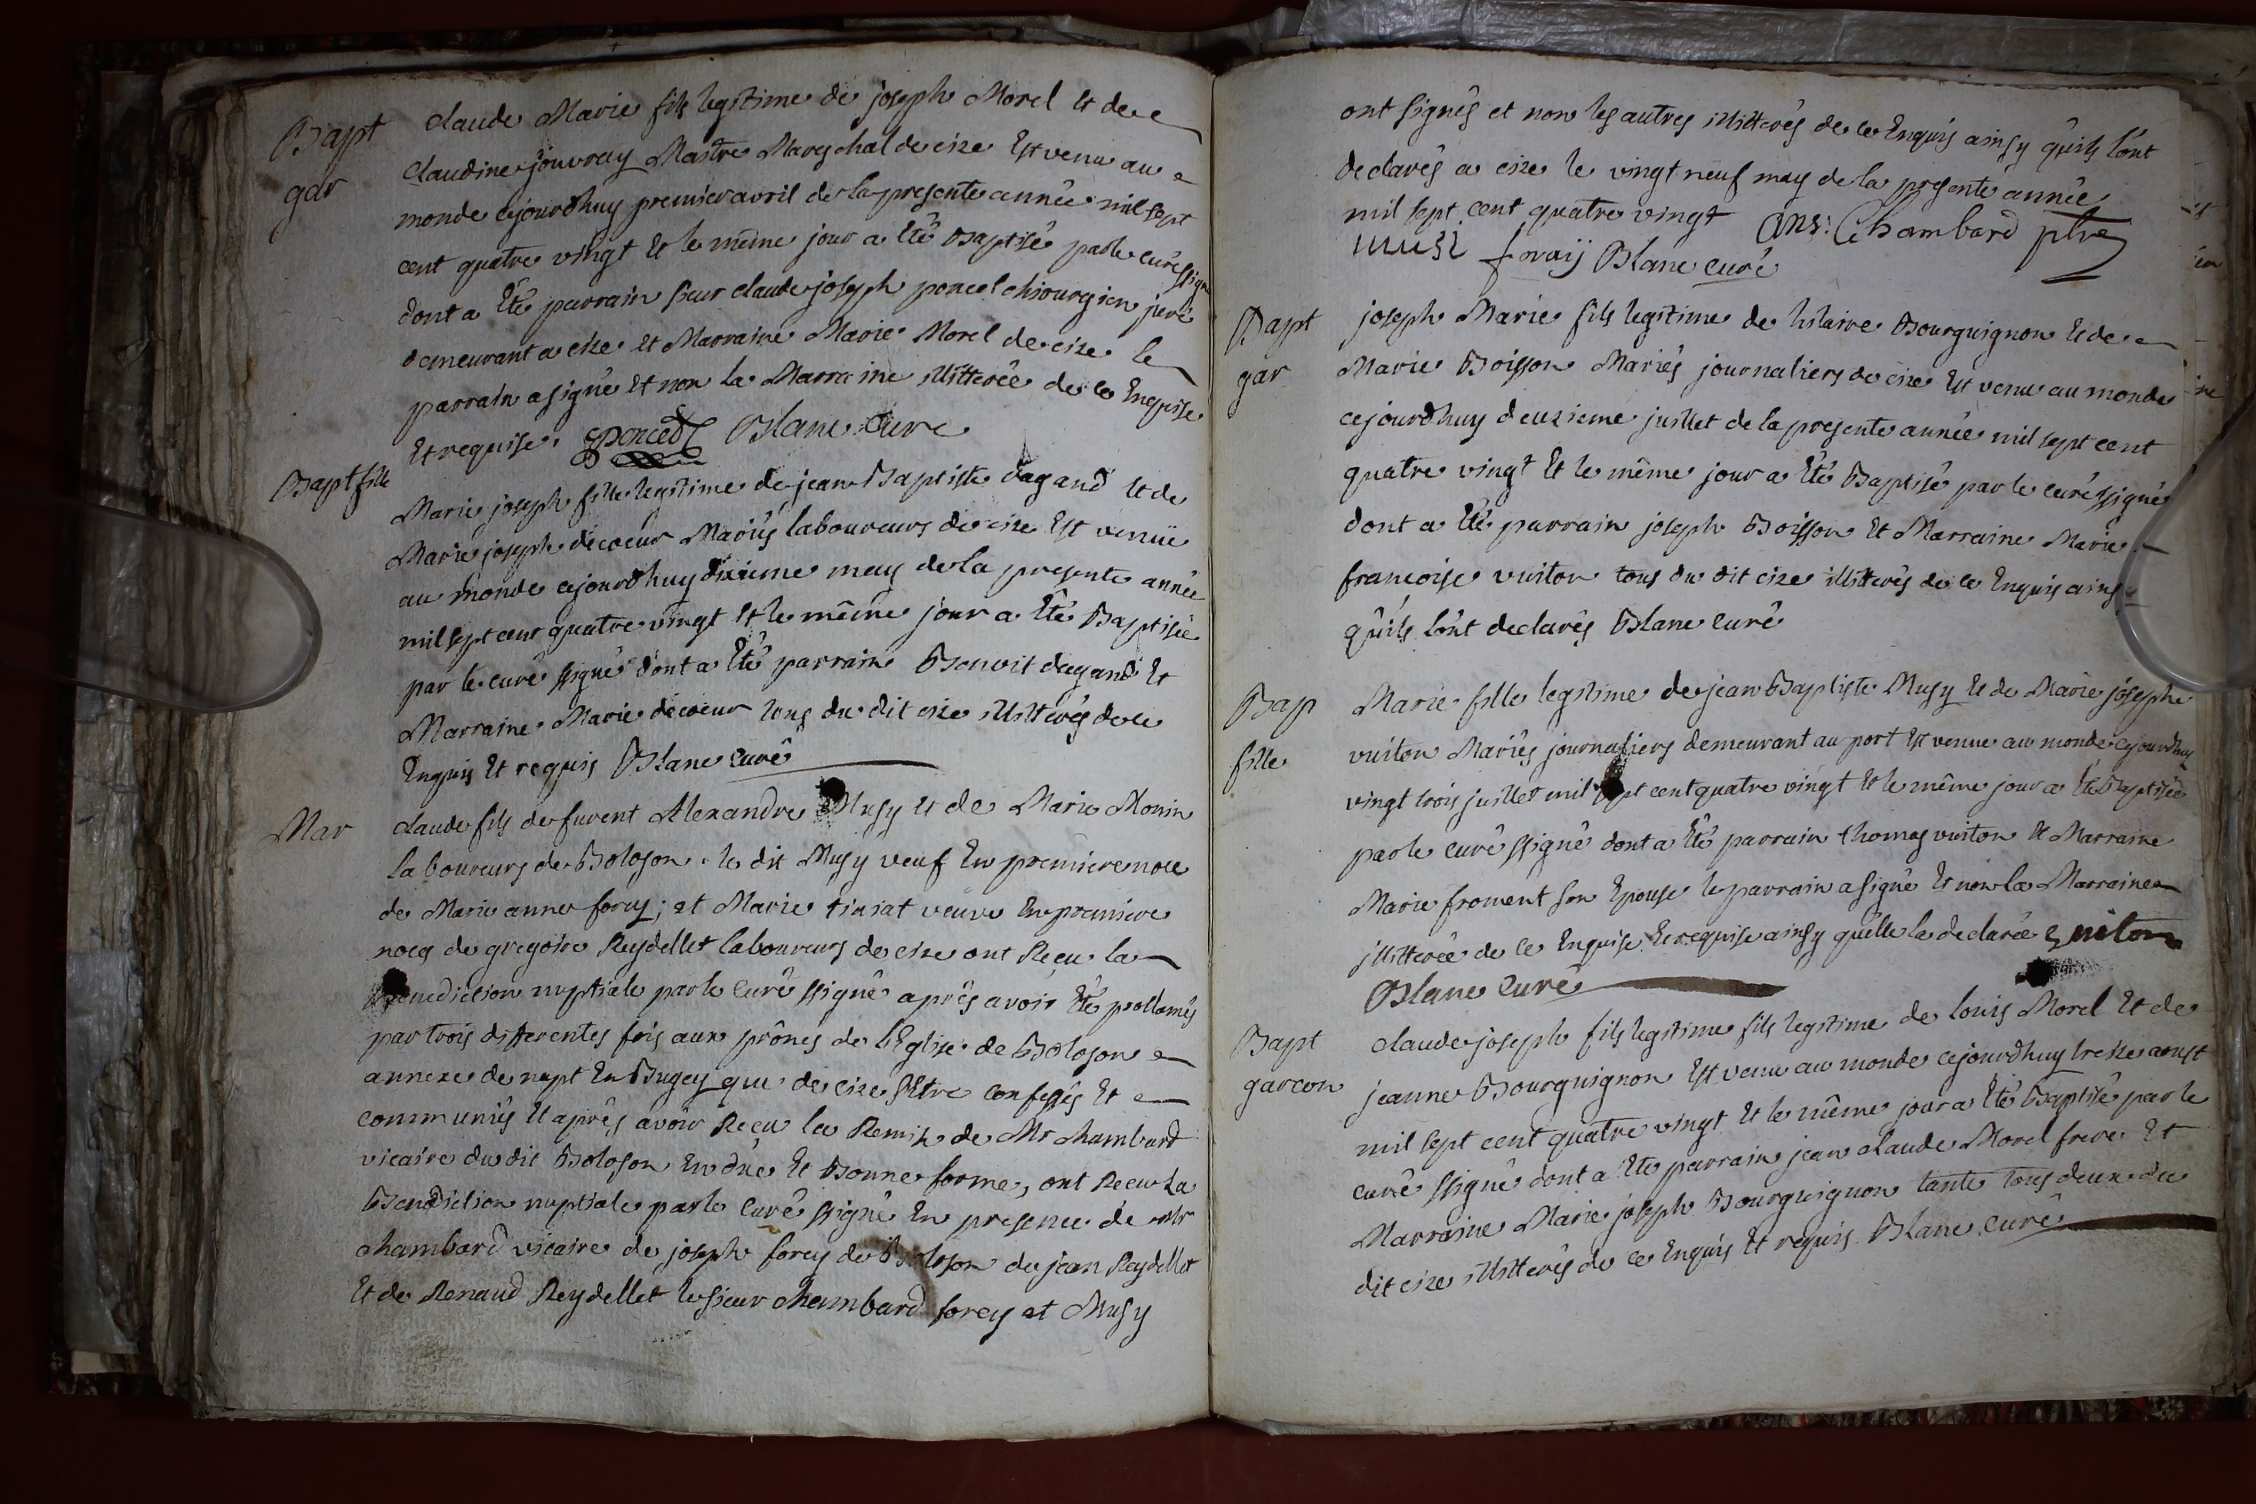 Bapt
gar
claude Marie fils legitime de joseph Morel Et de
claudine jouvray Maitre Mareschal de cize Est venu au
monde cejourdhuy premier avril de la presente année mil sept
cent quatre vingt Et le même jour a Eté Baptisé par le curé ssigné
dont a Eté parrain sieur claude joseph poncet chirurgien juré
demeurant a cize et Marraine Marie Morel de cize le
parrain a signé Et non la Marraine illitterée de ce Enquise
Et requise. poncet Blanc Curé
Bapt fille
Marie joseph fille legitime de jean Baptiste dagand Et de
Marie joseph décoeur Mariés laboureurs de cize Est venüe
au monde cejourdhuy dixieme may de la presente année
mil sept cent quatre vingt Et le même jour a Eté Baptisée
par le curé ssigné dont a Eté parrain Benoit dagand Et
Marraine Marie décoeur tous du dit cize illitterés de ce
Enquis Et requis Blanc curé
Mar
claude fils de furent Alexandre Musy Et de Marie Monin
laboureurs de Boloson le dit Musy veuf En premiere noce
de Marie anne forey; et Marie veuve En premiere
noces de gregoire Reydellet laboureurs de cize ont Reçu la
Benediction nuptiale par le Curé ssigné après avoir Eté proclamés
par trois differentes fois aux prônes de l'Eglise de Boloson
annexe de napt En Bugey que de cize s'Etre confessés Et
communiés Et après avoir Reçu la Remise de Mr chambard
vicaire du dit Boloson En düe Et Bonne forme, ont Reçu La
Benediction nuptiale par le Curé ssigné En presence de Mr
chambard vicaire de joseph forey de Boloson de jean Reydellet
Et de Renaud Reydellet le sieur chambard forey et Musy
ont signés et non les autres illitterés de ce Enquis ainsy qu'ils l'ont
declarés a cize le vingt neuf may de la presente année
mil sept cent quatre vingt Chambard ptre
musi foraij Blanc curé
Bapt
gar
joseph Marie fils legitime de hilaire Bourguignon Et de
Marie Boisson Mariés journaliers de cize Est venu au monde
cejourdhuy deuxieme juillet de la presente année mil sept cent
quatre vingt Et le même jour a Eté Baptisé par le curé ssigné
dont a Eté parrain joseph Boisson Et Marraine Marie
francoise vuiton tous du dit cize illitterés de ce Enquis ainsy
qu'ils l'ont declarés Blanc curé
Bap
fille
Marie fille legitime de jean Baptiste Musy Et de Marie joseph
vuiton Mariés journaliers demeurant au port Est venue au monde cejourdhuy
vingt trois juillet mil sept cent quatre vingt Et le même jour a Eté Baptisée
par le curé ssigné dont a Eté parrain thomas vuiton Et Marraine
Marie froment son Epouse le parrain a signé Et non la Marraine
illitterée de ce Enquise Et requise ainsy qu'elle la declarée
Blanc Curé
Bapt
garcon
claude joseph fils legitime fils legitime de louis Morel Et de
jeanne Bourguignon Est venu au monde cejourdhuy treize aoust
mil sept cent quatre vingt Et le même jour a Eté Baptisé par le
curé ssigné dont a Eté parrain jean claude Morel frere Et
Marraine Marie joseph Bourguignon tante tous deux du
dit cize illitterés de ce Enquis Et requis Blanc curé